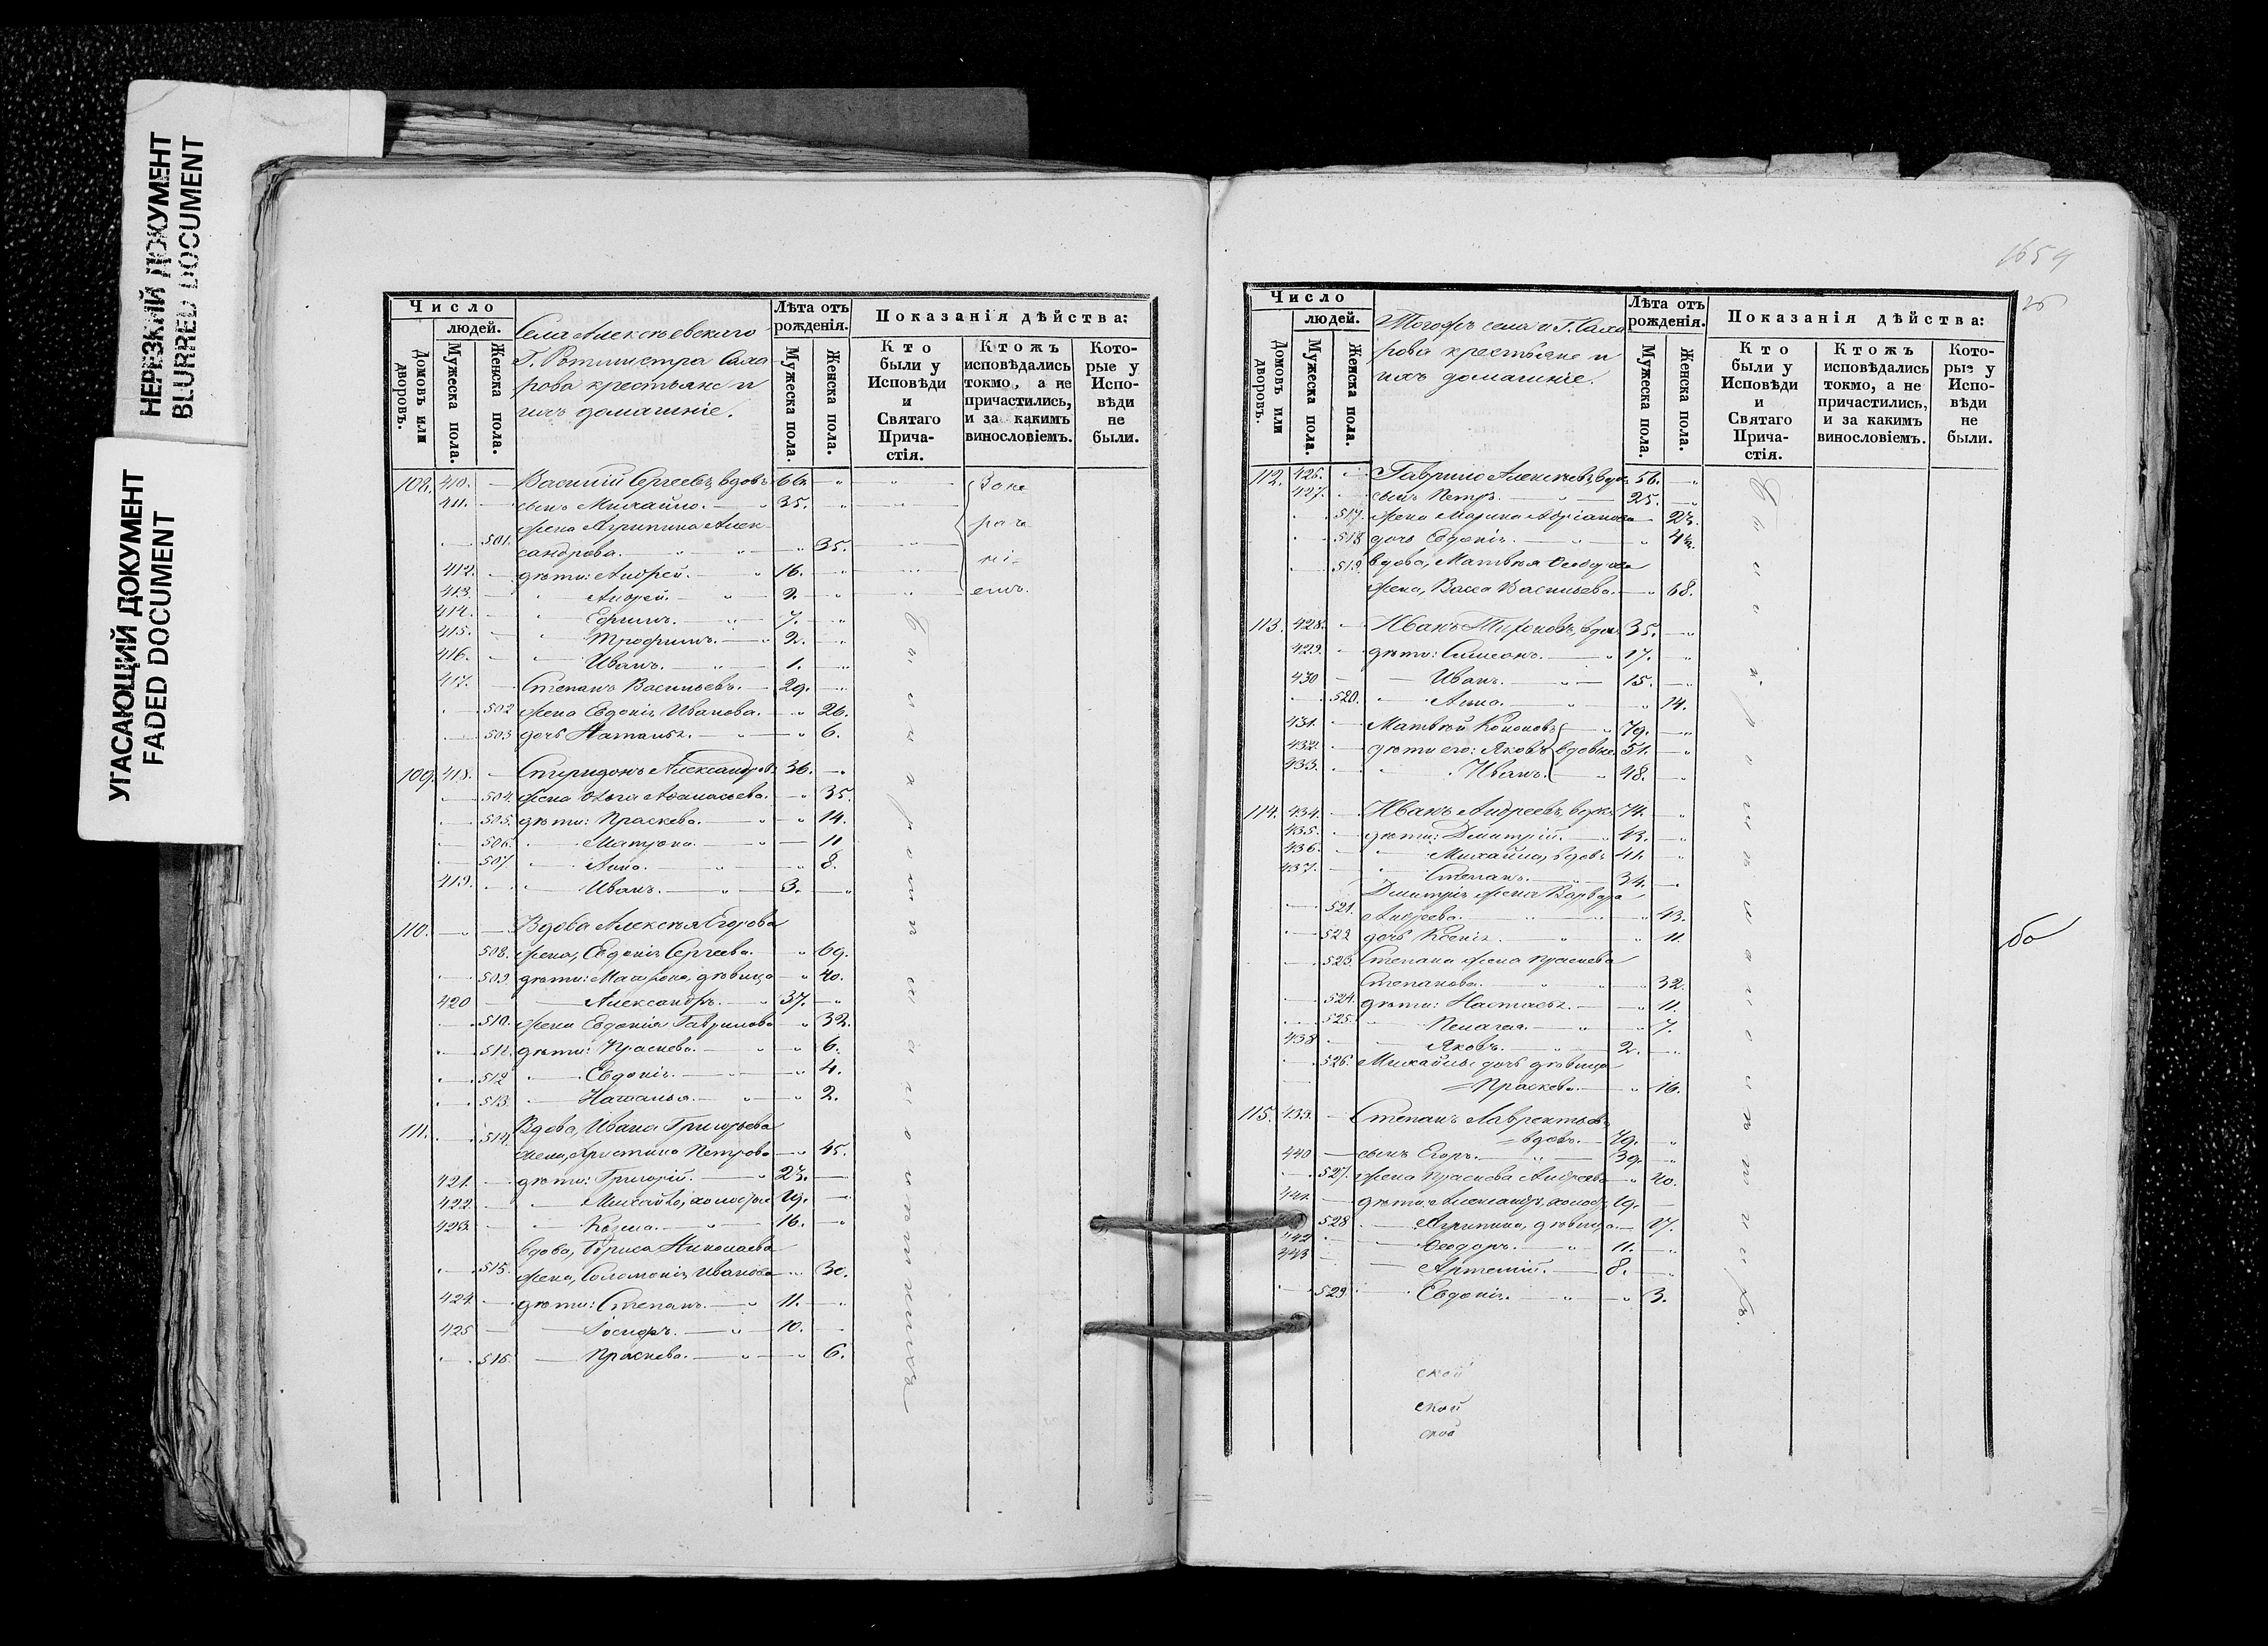 НЕРЕЗКИЙ ДОКУМЕНТ
BLURRED DOCUMENT
УГАСАЮЩИЙ ДОКУМЕНТ
FADED DOCUMENT
Число
людей.
Домовъ или дворовъ.
Мужеска пола.
Женска пола.
Села Алексѣевскаго
Г. Ротмистра Саха
рова крестьяне и
ихъ домашніе.
Лѣта отъ рожденія.
Мужеска пола.
Женска пола.
Показанія дѣйства:
Кто были у Исповѣди и Святаго Прича-стія.
Ктожъ исповѣдались токмо, а не причастились, и за какимъ винословіемъ.
Кото-рые у Испо-вѣди не были.
108. 410. Василій Сергеевъ, вдовъ 66.
411. сынъ Михайло. 35.
жена Агрипина Алек
501. сандрова. 35.
412. дѣти: Андрей. 16.
413. Андрей. 9.
414. Ефимъ. 7.
415. Трофимъ. 2.
416. Иванъ. 1.
417. Степанъ Васильевъ. 29.
502 жена Евдокія Иванова. 26.
503 дочь Наталья. 6.
109. 418. Спиридонъ Александровъ 36.
504. жена Ольга Аѳанасьева. 35.
505. дѣти: Праскева. 14.
506. Матрона. 11
507 Анна. 8.
419. Иванъ. 3.
110. Вдова Алексѣя Егорова
508. жена, Евдокія Сергеева. 69.
509. дѣти: Матрона, дѣвица 40.
420 Александръ. 37.
510. жена Евдокія Гаврилова 32.
511. дѣти: Праскева. 6.
512 Евдокія. 4.
513. Наталья. 2.
111. 514. Вдова, Ивана Григорьева
жена, Христина Петрова 45.
421. дѣти: Григорій. 23.
422. Михайло, холостъ 19.
423. Козма. 16.
вдова, Бориса Николаева
515. жена, Соломонія Иванова 30.
424 дѣти: Степанъ. 11.
425 Іосифъ. 10.
516. Праскева. 6.
1654
Число
людей.
Домовъ или дворовъ.
Мужеска пола.
Женска пола.
Тогожъ села и Г. Саха
рова крестьяне и
ихъ домашніе.
Лѣта отъ рожденія.
Мужеска пола.
Женска пола.
Показанія дѣйства:
Кто были у Исповѣди и Святаго Прича-стія.
Ктожъ исповѣдались токмо, а не причастились, и за какимъ винословіемъ.
Кото-рые у Испо-вѣди не были.
112. 426. Гаврило Алексѣевъ, вдов 56.
427. сынъ Петръ. 25.
517. жена Марина Адріанова 23.
518 дочь Евдокія.
519. вдова, Матвѣя Ѳеодорова
жена, Васса Васильева. 68.
113. 428. Иванъ Тихоновъ, вдов. 35.
429. дѣти: Симеонъ. 17.
430 Иванъ. 15.
520. Анна. 14.
431. Матвѣй Кононовъ 79.
432. дѣти его: Яковъ вдовые. 51.
433. Иванъ. 48.
114. 434. Иванъ Андреевъ, вдовъ 74.
435. дѣти: Дмитрій. 43.
436. Михайло, вдовъ 41.
437. Степанъ. 34.
Дмитрія жена Варвара
521. Андреева. 43.
522 дочь Ксенія. 11.
523. Степана жена Праскева
Степанова. 32.
524. дѣти: Настасья. 11.
525. Пелагея. 7.
438 Яковъ. 2.
526. Михайлы дочь дѣвица
Праскева. 16.
115. 439. Степанъ Лаврентьевъ
вдовъ. 79.
440 сынъ Егоръ. 39.
527. жена Праскева Андреева 40.
441. дѣти: Александръ, холост. 19.
528 Агрипина, дѣвица. 17.
442 Ѳеодоръ. 11.
443 Артемій. 8.
529 Евдокія. 3.
ской
ской
ской